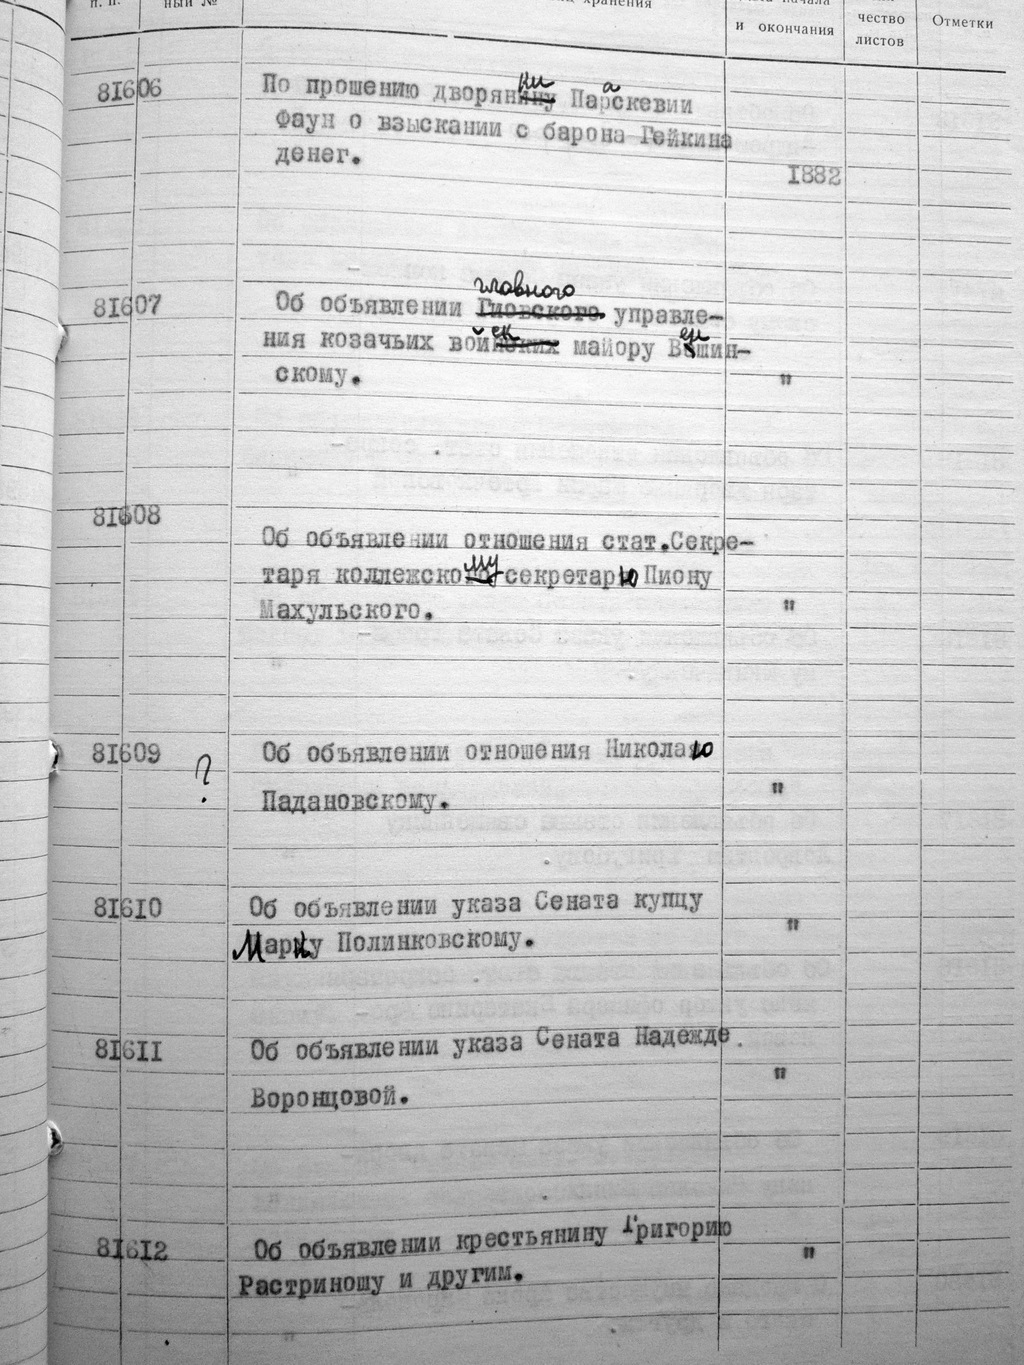 п. п.
ный №
хранения
и окончания
чество
листов
Отметки
81606
По прошению дворянки Параскевии
Фаун о взыскании с барона Гейкина
денег.
1882
81607
главного
Об объявлении Гиовского управле-
ния козачьих войск майору Вершин-
скому.
"
81608
Об объявлении отношения стат.Секре-
таря коллежскому секретарю Пиону
Махульского.
"
81609
?
Об объявлении отношения Николаю
Падановскому.
"
81610
Об объявлении указа Сената купцу
Марку Полинковскому.
"
81611
Об объявлении указа Сената Надежде
Воронцовой.
"
81612
Об объявлении крестьянину Григорию
Растриношу и другим.
"